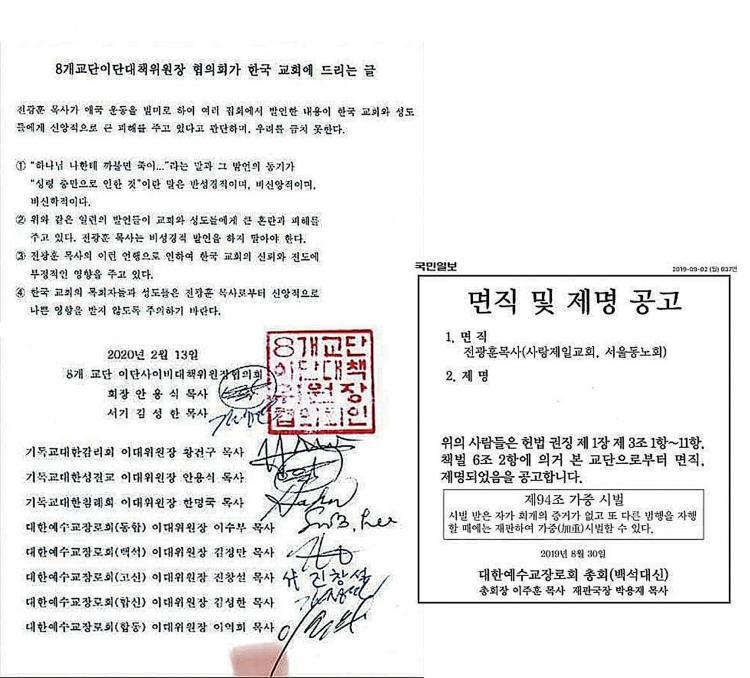 8개교단이단대책위원장 협의회가 한국 교회에 드리는 글
전광훈 목사가 애국 운동을 빌미로 하여 여러 집회에서 발언한 내용이 한국 교회와 성도
들에게 신앙적으로 큰 피해를 주고 있다고 판단하며, 우려를 금치 못한다.
① "하나님 나한테 까불면 죽어..."라는 말과 그 발언의 동기가
"성령 충만으로 인한 것"이란 말은 반성경적이며, 비신앙적이며,
비신학적이다.
② 위와 같은 일련의 발언들이 교회와 성도들에게 큰 혼란과 피해를
주고 있다. 전광훈 목사는 비성경적 발언을 하지 말아야 한다.
③ 전광훈 목사의 이런 언행으로 인하여 한국 교회의 신뢰와 전도에
부정적인 영향을 주고 있다.
④ 한국 교회의 목회자들과 성도들은 전광훈 목사로부터 신앙적으로
나쁜 영향을 받지 않도록 주의하기 바란다.
2020년 2월 13일
8개 교단 이단사이비대책위원장협의회
회장 안용식 목사
서기 김성한 목사
8개교단
이단대책
위원장
협의회인
기독교대한감리회 이대위원장 황건구 목사
기독교대한성결교 이대위원장 안용식 목사
기독교대한침례회 이대위원장 한명국 목사
대한예수교장로회(통합) 이대위원장 이수부 목사
대한예수교장로회(백석) 이대위원장 김정만 목사
대한예수교장로회(고신) 이대위원장 진창설 목사
대한예수교장로회(합신) 이대위원장 김성한 목사
대한예수교장로회(합동) 이대위원장 이억희 목사
진창설
국민일보
2019-09-02 (월) 037면
면직 및 제명 공고
1. 면 직
전광훈목사(사랑제일교회, 서울동노회)
2. 제 명
위의 사람들은 헌법 권징 제 1장 제 3조 1항~11항,
책벌 6조 2항에 의거 본 교단으로부터 면직,
제명되었음을 공고합니다.
제94조 가중 시벌
시벌 받은 자가 회개의 증거가 없고 또 다른 범행을 자행
할 때에는 재판하여 가중(加重)시벌할 수 있다.
2019년 8월 30일
대한예수교장로회 총회(백석대신)
총회장 이주훈 목사 재판국장 박용재 목사